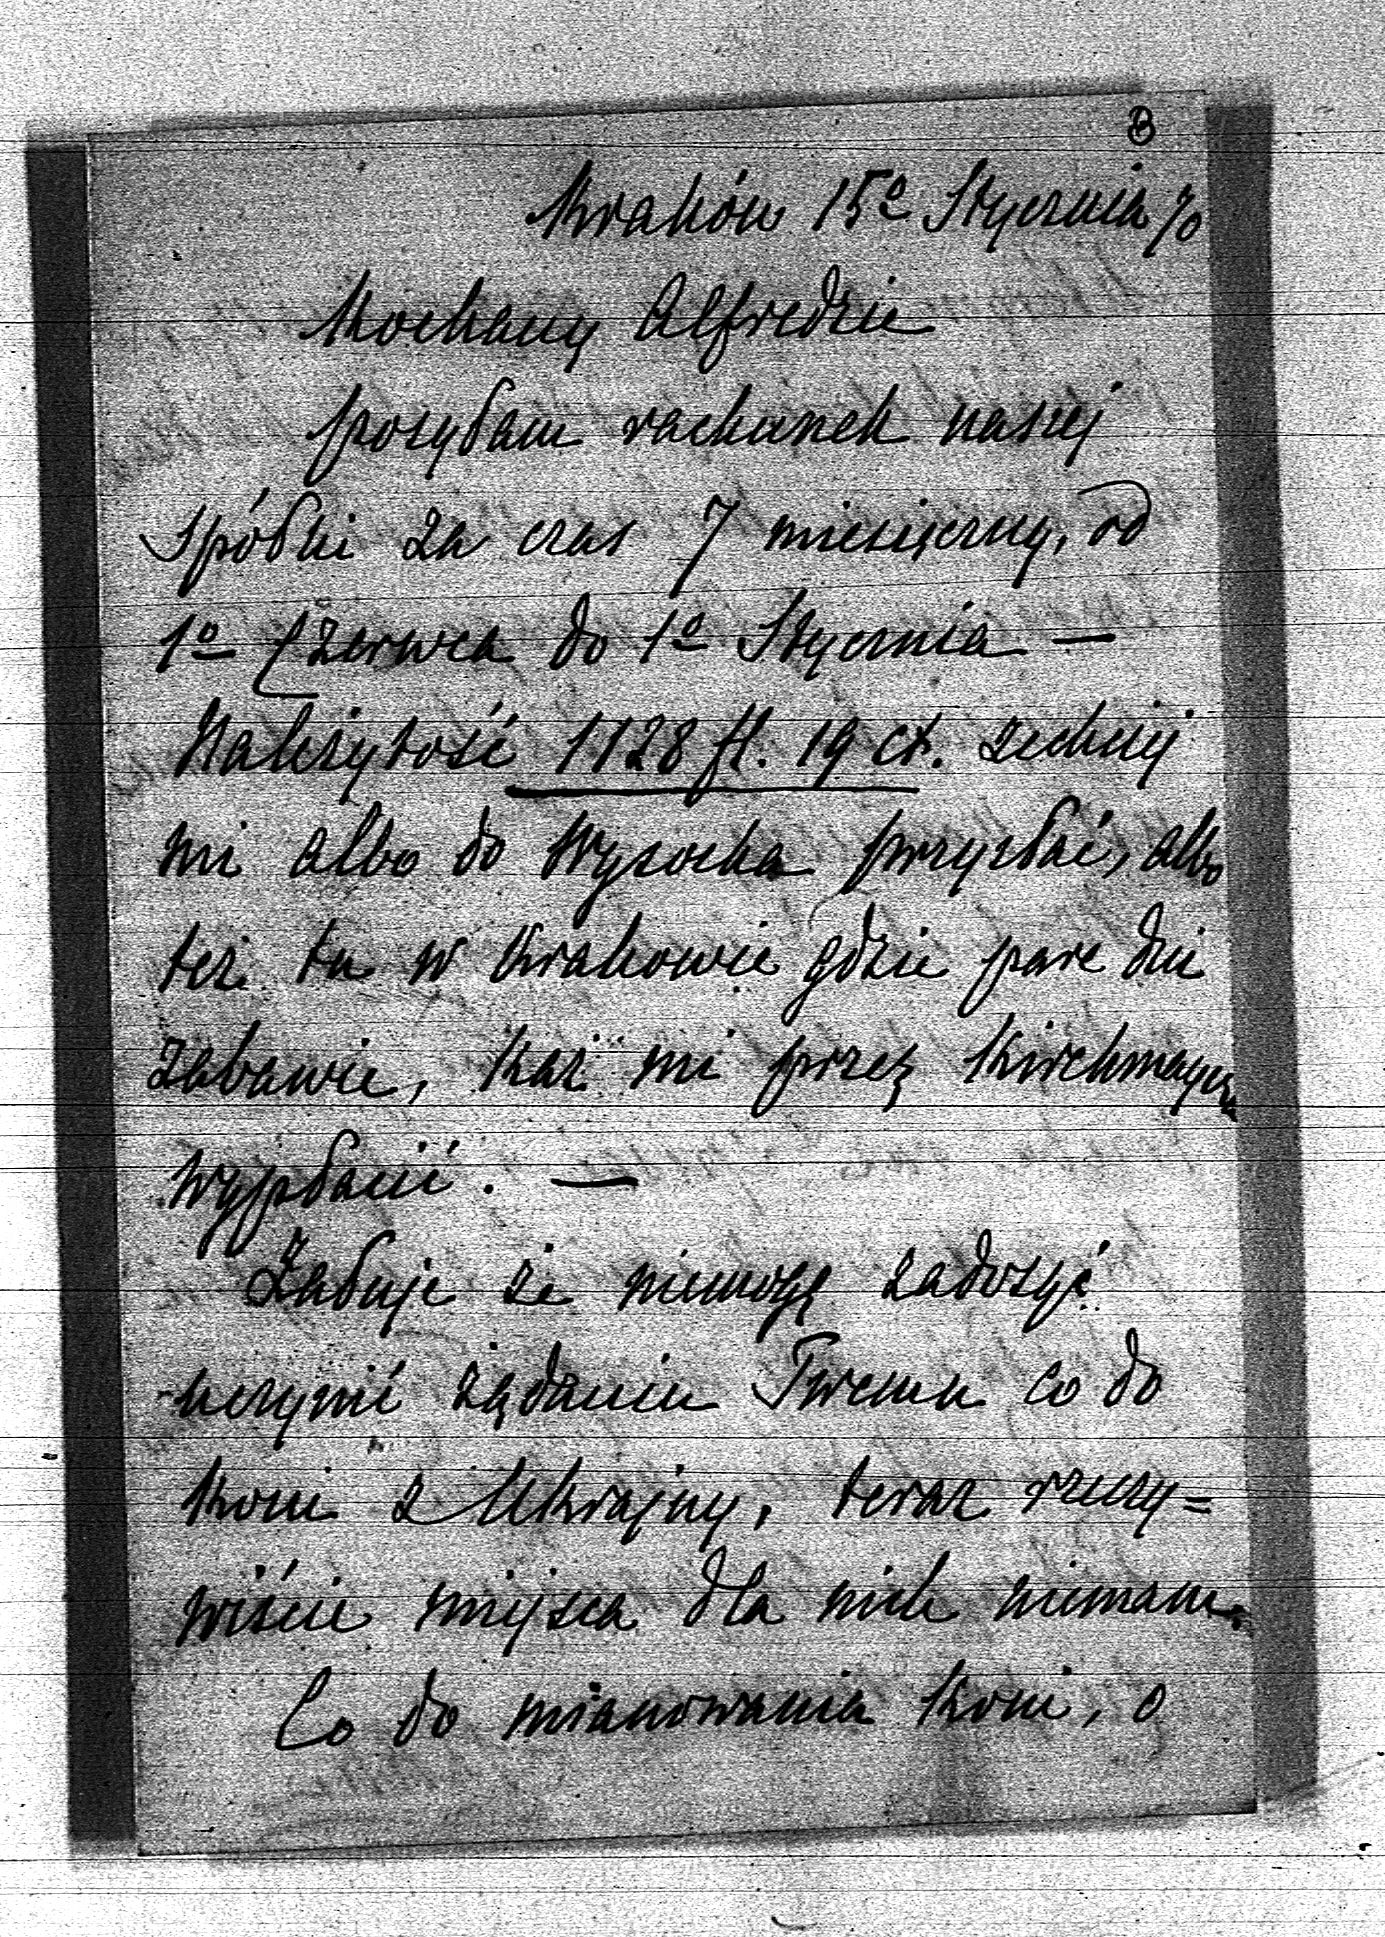 Kraków 15º Stycznia 70
Kochany Alfredzie
posyłam rachunek naszej
Spółki za czas 7 miesięczny, od
1º Czerwca do 1º Stycznia —
Należytość 1128 fl. 19 ct. zechciej
mi albo do Wysocka przysłać, albo
też tu w Krakowie gdzie pare dni
zabawie, każ mi przez Kirchmayera
wypłacić. —
Żałuje że niemogę zadosyć
uczynić żądaniu Twemu co do
koni z Ukrajny, teraz rzeczy=
wiście miejsca dla nich niemam.
Co do mianowania koni, o